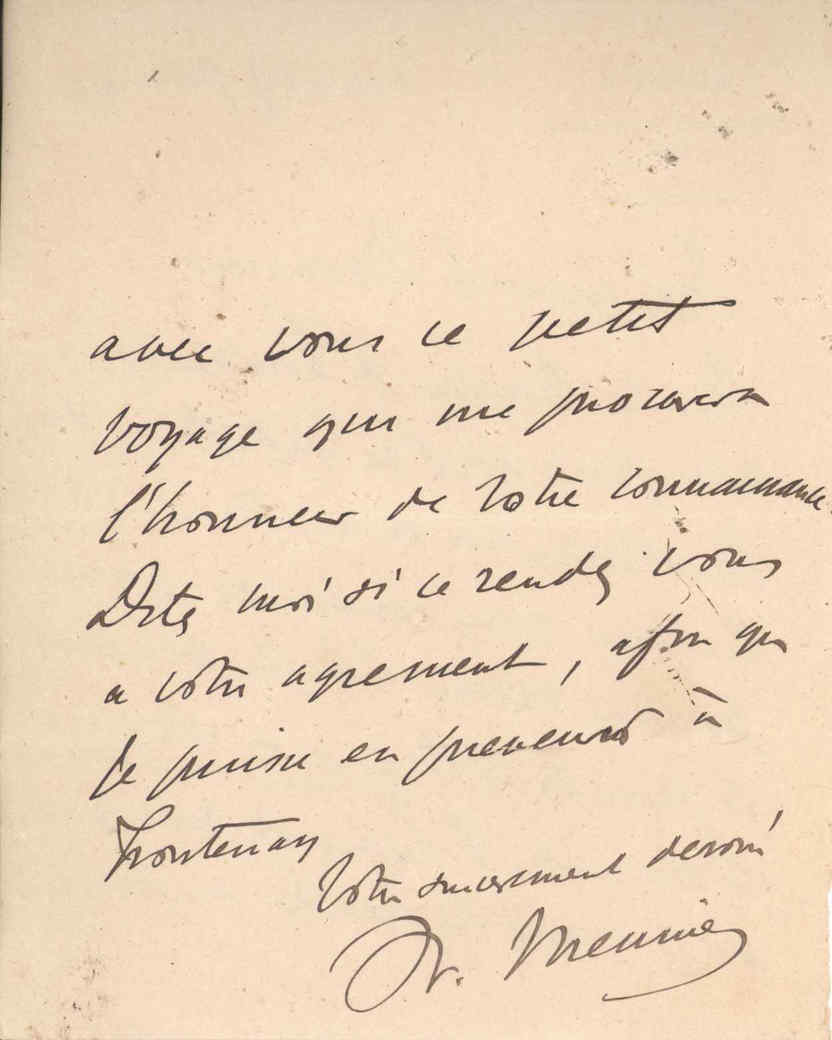 avec vous ce petit
voyage qui me procurera
l'honneur de votre connaissance.
Dites moi si ce rendez vous
a votre agrement, afin que
je puisse en prevenir à
Frontenay
Votre sincerement devoué
V. Meunier